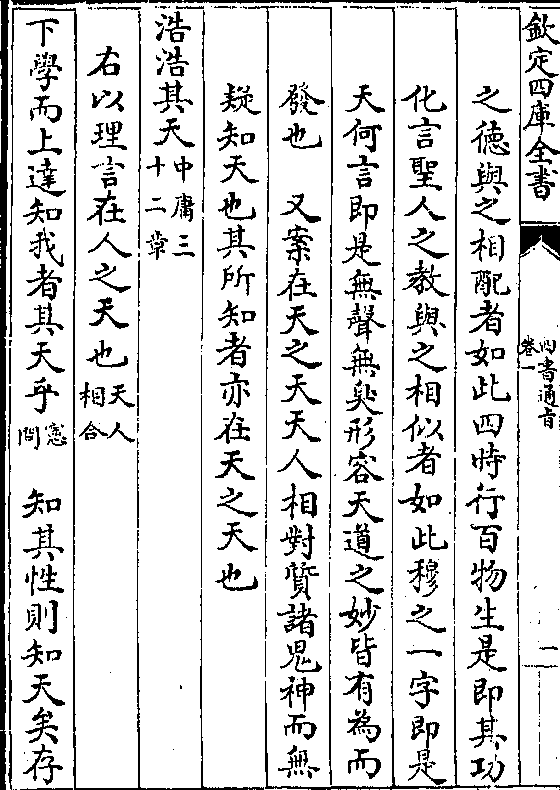 欽定四庫全書
四書通旨
卷一
一
之德與之相配者如此四時行百物生是即其功
化言聖人之教與之相似者如此穆之一字即是
天何言即是無聲無臭形容天道之妙皆有為而
發也　又案在天之天天人相對質諸鬼神而無
疑知天也其所知者亦在天之天也
浩浩其天中庸三十二章
右以理言在人之天也天人相合
下學而上達知我者其天乎憲問　知其性則知天矣存